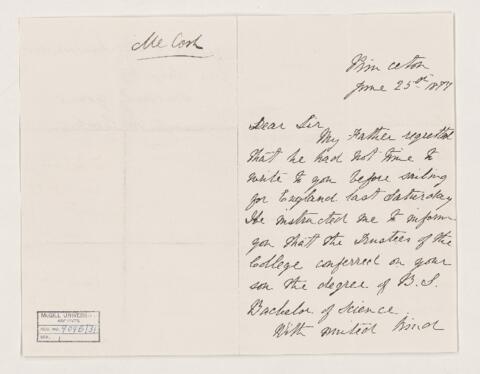 McCosh
Princeton
June 25th 1877
Dear Sir,
My Father regretted
that he had not time to
write to you before sailing
for England last Saturday
He instructed me to inform
you that the Trustees of the
College conferred on your
son the degree of B.S.
Bachelor of Science.
With united kind
McGILL UNIVERSITY
ARCHIVES
ACC. NO.
REF.